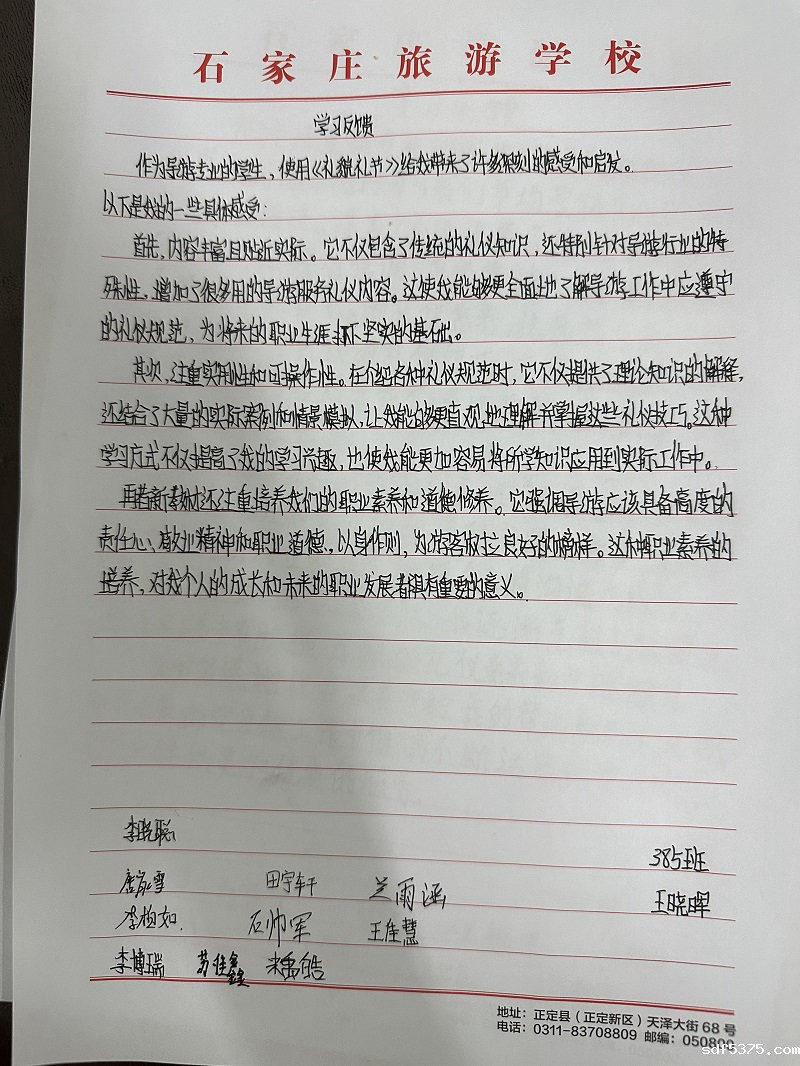 石家庄旅游学校
学习反馈
作为导游专业的学生，使用《礼貌礼节》给我带来了许多深刻的感受和启发。
以下是我的一些具体感受：
首先，内容丰富且贴近实际。它不仅包含了传统的礼仪知识，还特别针对导游行业的特
殊性，增加了很多用的导游服务礼仪内容。这使我能够更全面地了解导游工作中应遵守
的礼仪规范，为将来的职业生涯打下坚实的基础。
其次，注重实用性和可操作性。在介绍各种礼仪规范时，它不仅提供了理论知识的解释，
还结合了大量的实际案例和情景模拟，让我能够更直观地理解并掌握这些礼仪技巧。这种
学习方式不仅提高了我的学习兴趣，也使我能更加容易将所学知识应用到实际工作中。
再者新教材还注重培养我们的职业素养和道德修养。它强调导游应该具备高度的
责任心、敬业精神和职业道德，以身作则，为游客树立良好的榜样。这种职业素养的
培养，对我个人的成长和未来的职业发展都具有重要的意义。
李晓聪
385班
田宇轩 兰雨涵
王晓晖
石帅军 王佳慧
李博瑞
地址：正定县（正定新区）天泽大街 68 号
电话：0311-83708809 邮编：050800
sdf5375.com